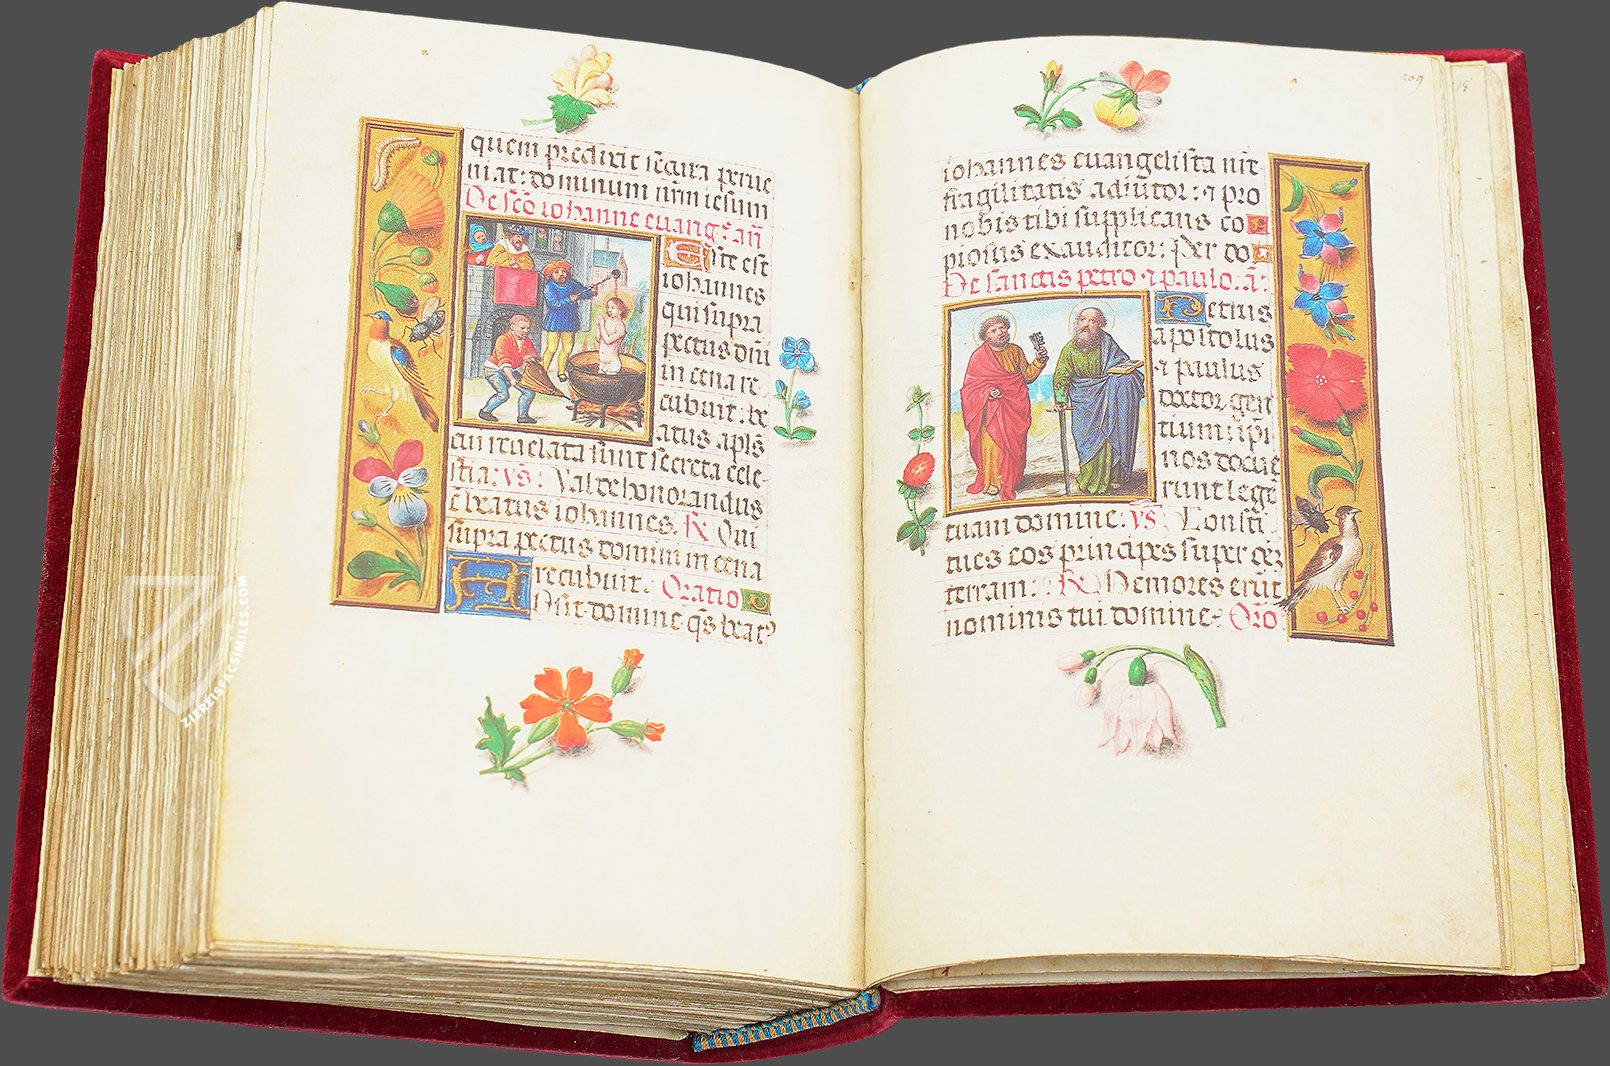 quem predixit secura perue
niat: dominum nrm iesum
De scō iohanne euangᵉ. an̄
Iste est
iohannes
qui supra
pectus dn̄i
in cena re
cubuit: be
atus apl̄s
cui reuelata sunt secreta cele
stia: vs̄: Valde honorandus
ē beatus iohannes. ℟ Qui
supra pectus domini in cena
recubuit. Oratio
Adsit domine qs̄ beatꝰ
209
iohannes euangelista nr̄e
fragilitatis adiutor: ⁊ pro
nobis tibi supplicans co
piosius exauditor: Per do
De sanctis petro ⁊ paulo. ā:
Petrus
apostolus
⁊ paulus
doctor gen
tium: ip̄i
nos docue
runt legē
tuam domine: vs̄: Consti
tues eos principes super oēz
terram: ℟ Memores erūt
nominis tui domine: Oro
18
1
ZIEREISFACSIMILES.COM